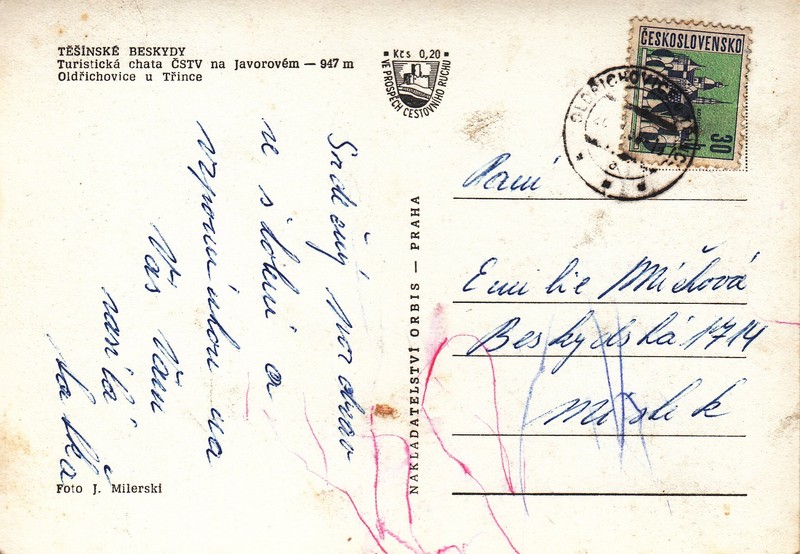 TĚŠÍNSKÉ BESKYDY
Turistická chata ČSTV na Javorovém — 947 m
Oldřichovice u Třince
Kčs 0,20
VE PROSPĚCH CESTOVNÍHO RUCHU
ČESKOSLOVENSKO
30
OLDŘICHOVICE
Srdečný pozdrav
ne s dobní a
vzpomínkou na
Vás Vám
NAKLADATELSTVÍ ORBIS — PRAHA
Paní
Emilie Míčková
Beskydská 1714
Místek
Foto J. Milerski